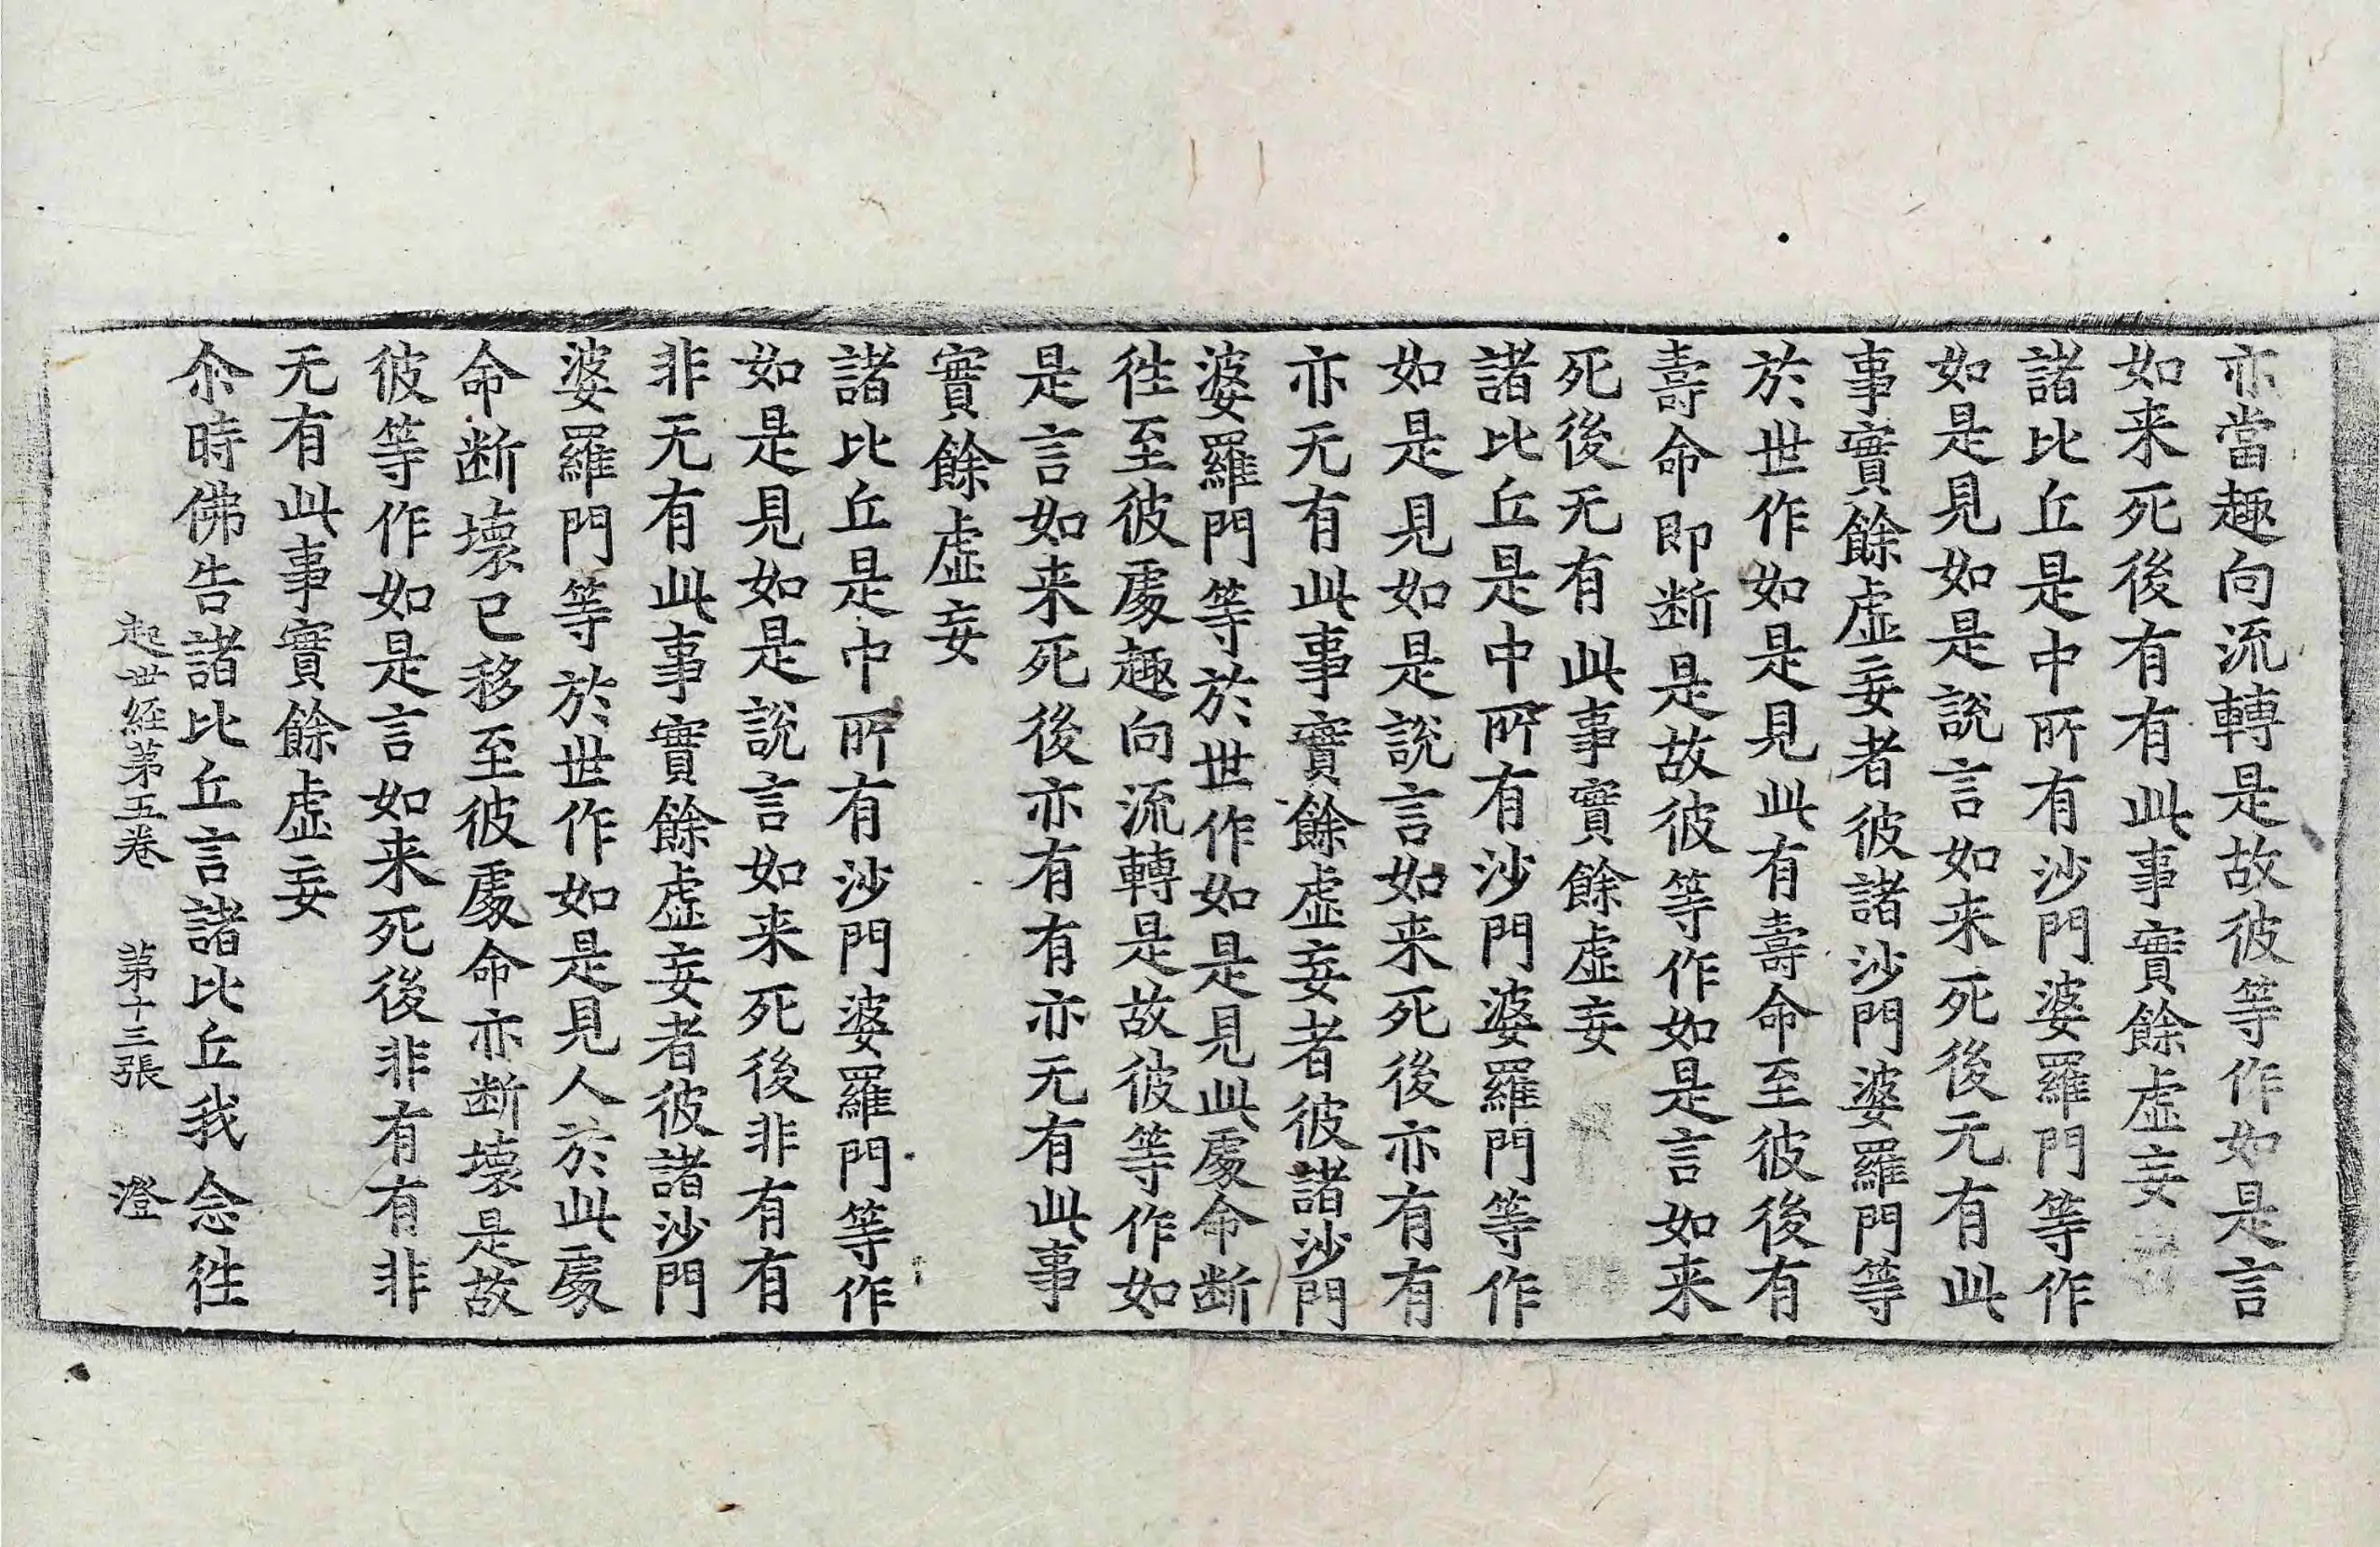 亦當趣向流轉是故彼等作如是言
如来死後有有此事實餘虛妄
諸比丘是中所有沙門婆羅門等作
如是見如是說言如来死後无有此
事實餘虛妄者彼諸沙門婆羅門等
於世作如是見此有壽命至彼後有
壽命即断是故彼等作如是言如来
死後无有此事實餘虛妄
諸比丘是中所有沙門婆羅門等作
如是見如是說言如来死後亦有有
亦无有此事實餘虛妄者彼諸沙門
婆羅門等於世作如是見此處命断
徃至彼處趣向流轉是故彼等作如
是言如来死後亦有有亦无有此事
實餘虛妄
諸比丘是中所有沙門婆羅門等作
如是見如是說言如来死後非有有
非无有此事實餘虛妄者彼諸沙門
婆羅門等於世作如是見人於此處
命断壞已移至彼處命亦断壞是故
彼等作如是言如来死後非有有非
无有此事實餘虛妄
尒時佛告諸比丘言諸比丘我念徃
起世経第五卷 第十三張 澄